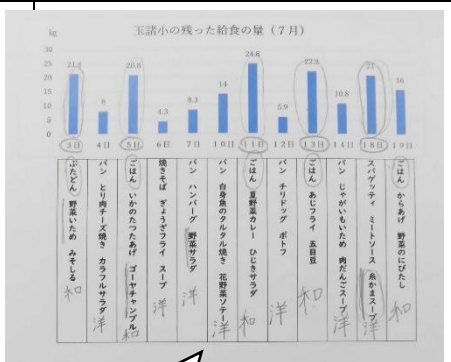 玉諸小の残った給食の量（7月）
kg
30
25
20
15
10
5
0
21.4
8
20.8
4.3
8.3
14
24.8
5.9
22.3
10.8
21
16
3日
4日
5日
6日
7日
10日
11日
12日
13日
14日
18日
19日
ぶたどん 野菜いため みそしる
和
パン とり肉チーズ焼き カラフルサラダ
洋
ごはん いかのたつたあげ ゴーヤチャンプル
和
焼きそば ぎょうざフライ スープ
洋
パン ハンバーグ 野菜サラダ
洋
パン 白身魚のタルタル焼き 花野菜ソテー
洋
ごはん 夏野菜カレー ひじきサラダ
和
パン チリドッグ ポトフ
洋
ごはん あじフライ 五目豆
和
パン じゃがいもいため 肉だんごスープ
洋
スパゲッティ ミートソース 糸かまスープ
洋
ごはん からあげ 野菜のにびたし
和